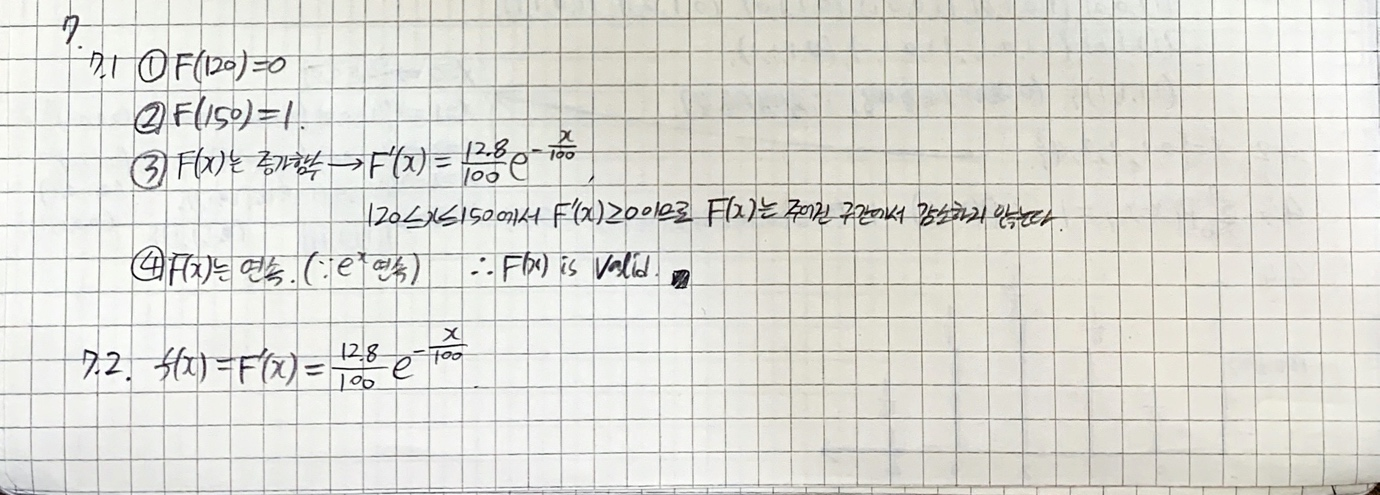 7.
7.1 ① F(120)=0
② F(150)=1.
③ F(x)는 증가함수 → F'(x) = \frac{12.8}{100} e^{-\frac{x}{100}},
120≤x≤150에서 F'(x)≥0이므로 F(x)는 주어진 구간에서 감소하지 않는다.
④ F(x)는 연속. (∵ e^x 연속) ∴ F(x) is valid.
7.2. f(x) = F'(x) = \frac{12.8}{100} e^{-\frac{x}{100}}.